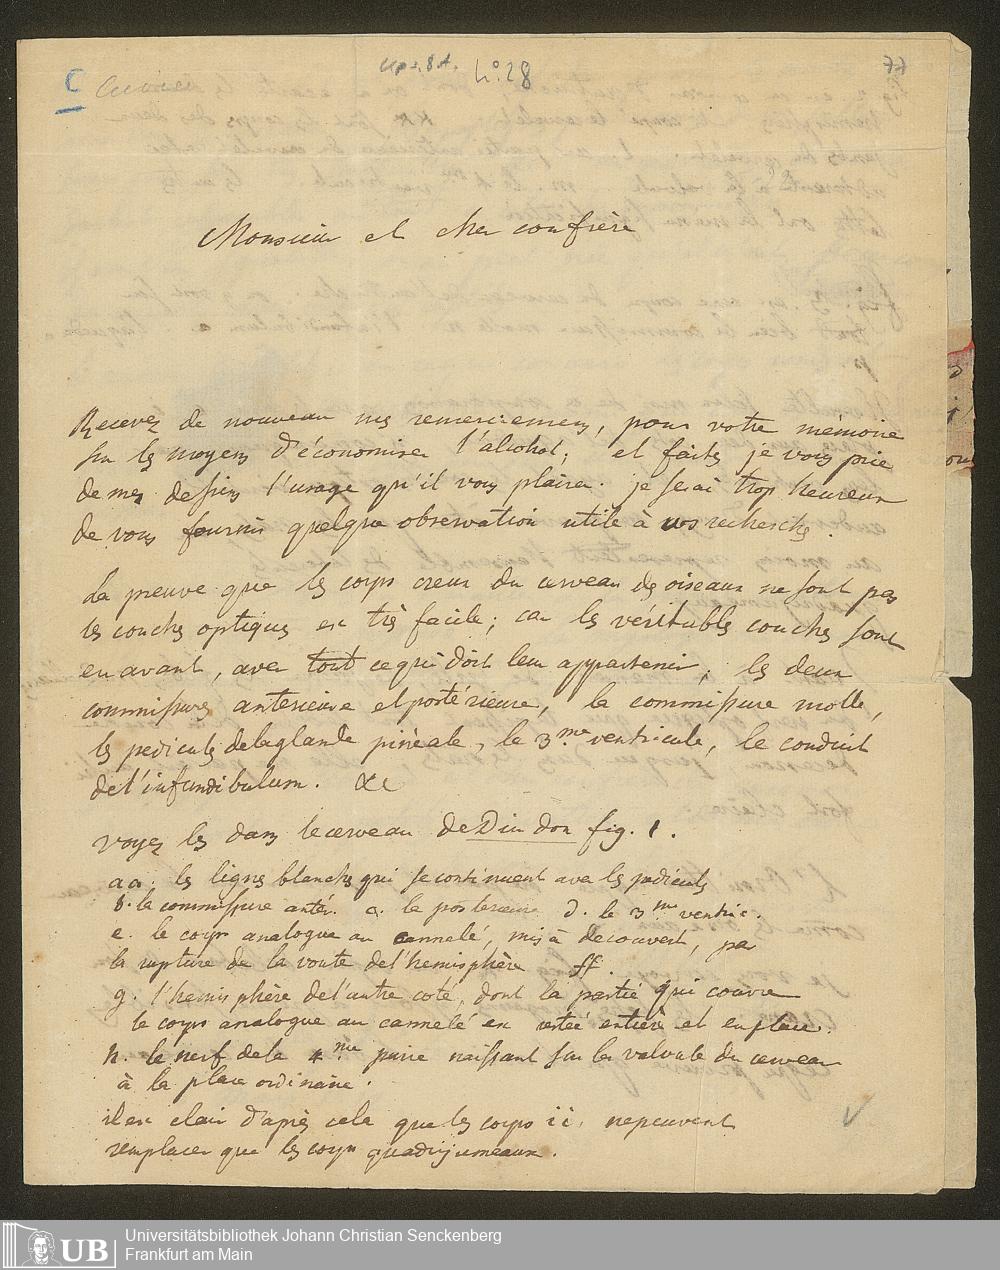 C Cuvier
N° 28
77
Monsieur et cher confrère
Recevez de nouveau mes remerciemens, pour votre mémoire
sur les moyens d'économiser l'alcohol; et faites je vous prie
de mes dessins l'usage qu'il vous plaira. je serai trop heureux
de vous fournir quelque observation utile à vos recherches.
La preuve que les corps creux du cerveau des oiseaux ne sont pas
les couches optiques est très facile; car les véritables couches sont
en avant, avec tout ce qui doit leur appartenir; les deux
commissures anterieure et postérieure, la commissure molle,
les pedicules de la glande pinéale, le 3.me ventricule, le conduit
de l'infundibulum. &c
voyez les dans le cerveau de Dindon fig. 1.
aa. les lignes blanches qui se continuent avec les pedicules
b. la commissure antér. c. la posterieure d. le 3.me ventric.
e. le corps analogue au cannelé, mis à decouvert, par
la rupture de la voute de l'hemisphère ff.
g. l'hemisphère de l'autre coté, dont la partie qui couvre
le corps analogue au cannelé est restée entière et en place.
h. le nerf de la 4.me paire naissant sur la valvule du cerveau
à la place ordinaire.
il est clair d'après cela que les corps ii, ne peuvent
remplacer que les corps quadrijumeaux.
UB
Universitätsbibliothek Johann Christian Senckenberg
Frankfurt am Main